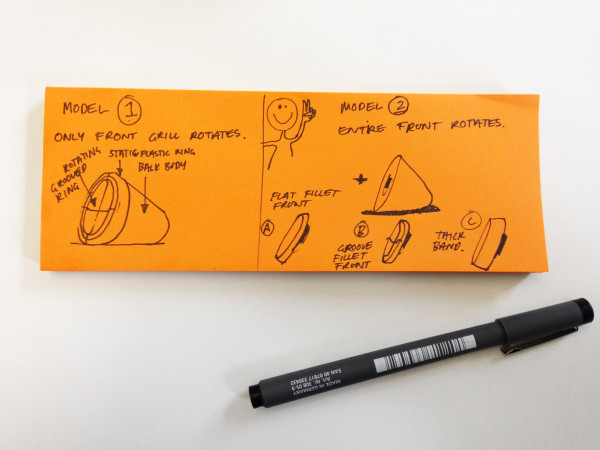 MODEL 1
ONLY FRONT GRILL ROTATES.
ROTATING
GROOVED
RING
STATIC PLASTIC RING
BACK BODY
MODEL 2
ENTIRE FRONT ROTATES.
+
FLAT FILLET
FRONT
A
B
GROOVE
FILLET
FRONT
C
THICK
BAND.
MADE IN GERMANY
Art. Nr. 308 05-9
EAN 40 07817 330432